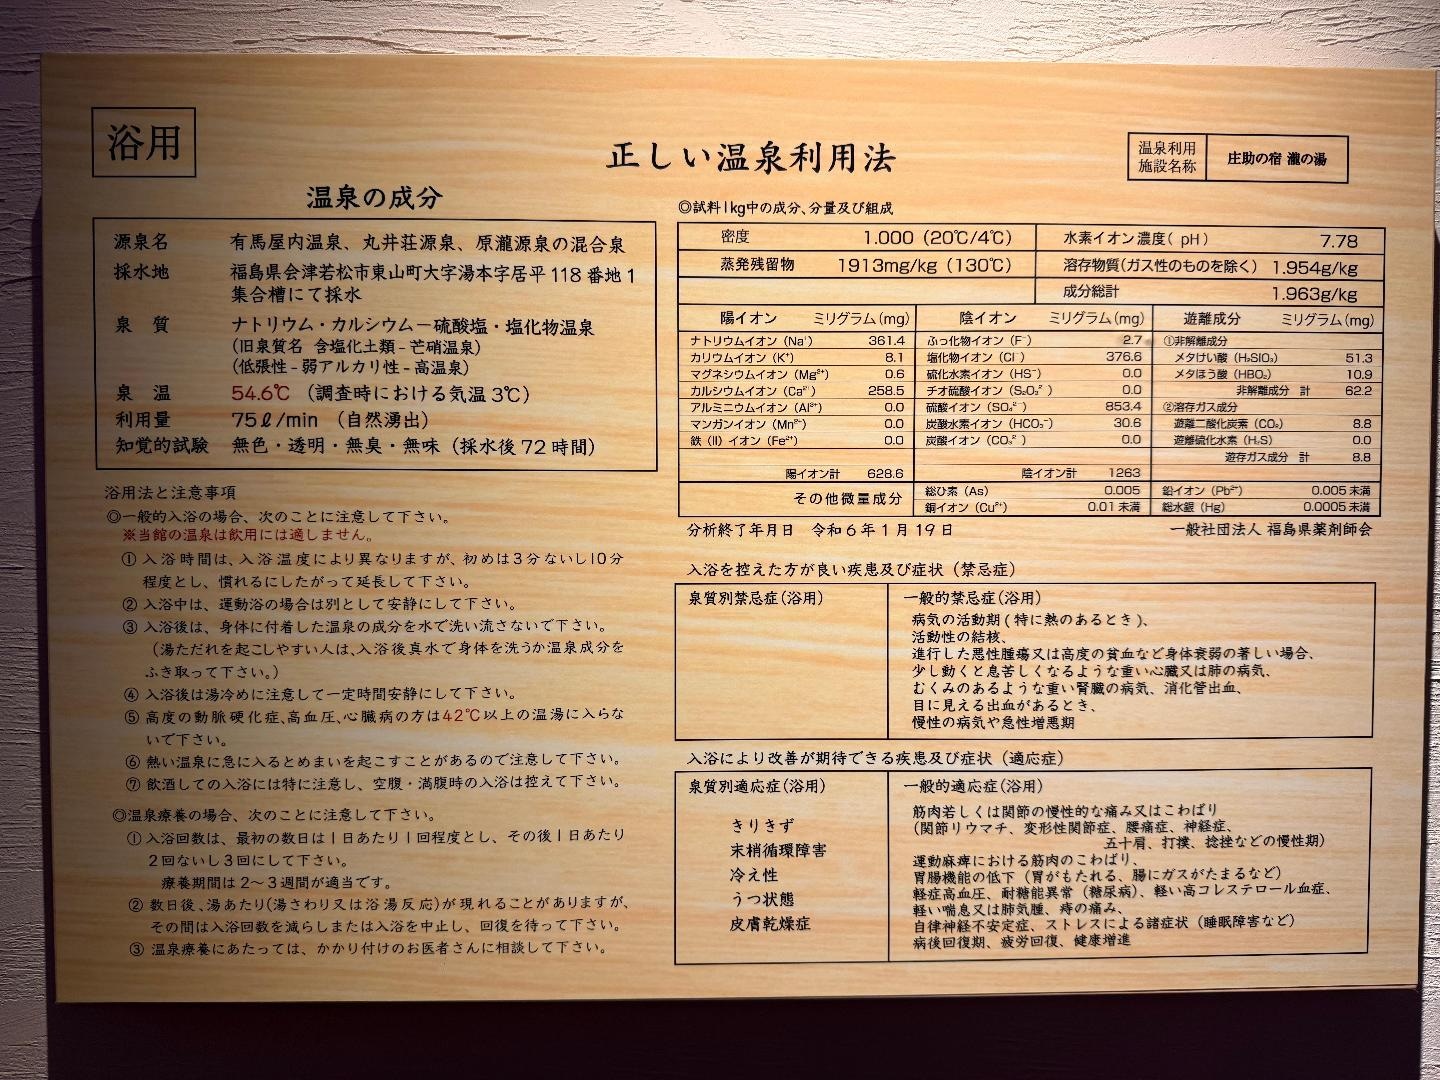 浴用
正しい温泉利用法
温泉利用
施設名称
庄助の宿 瀧の湯
温泉の成分
源泉名 有馬屋内温泉、丸井荘源泉、原瀧源泉の混合泉
採水地 福島県会津若松市東山町大字湯本字居平 118 番地 1
集合槽にて採水
泉 質 ナトリウム・カルシウム－硫酸塩・塩化物温泉
(旧泉質名 含塩化土類 - 芒硝温泉)
(低張性 - 弱アルカリ性 - 高温泉)
泉 温 54.6℃ （調査時における気温 3℃）
利用量 75ℓ/min （自然湧出）
知覚的試験 無色・透明・無臭・無味（採水後 72 時間）
浴用法と注意事項
◎一般的入浴の場合、次のことに注意して下さい。
※当館の温泉は飲用には適しません。
① 入浴時間は、入浴温度により異なりますが、初めは3分ないし10分
程度とし、慣れるにしたがって延長して下さい。
② 入浴中は、運動浴の場合は別として安静にして下さい。
③ 入浴後は、身体に付着した温泉の成分を水で洗い流さないで下さい。
（湯ただれを起こしやすい人は、入浴後真水で身体を洗うか温泉成分を
ふき取って下さい。）
④ 入浴後は湯冷めに注意して一定時間安静にして下さい。
⑤ 高度の動脈硬化症、高血圧、心臓病の方は42℃以上の温湯に入らな
いで下さい。
⑥ 熱い温泉に急に入るとめまいを起こすことがあるので注意して下さい。
⑦ 飲酒しての入浴には特に注意し、空腹・満腹時の入浴は控えて下さい。
◎温泉療養の場合、次のことに注意して下さい。
① 入浴回数は、最初の数日は1日あたり1回程度とし、その後1日あたり
2回ないし3回にして下さい。
療養期間は 2～3週間が適当です。
② 数日後、湯あたり(湯さわり又は浴湯反応)が現れることがありますが、
その間は入浴回数を減らしまたは入浴を中止し、回復を待って下さい。
③ 温泉療養にあたっては、かかり付けのお医者さんに相談して下さい。
◎試料1kg中の成分、分量及び組成
密度 1.000（20℃/4℃） 水素イオン濃度（pH） 7.78
蒸発残留物 1913mg/kg（130℃） 溶存物質（ガス性のものを除く） 1.954g/kg
成分総計 1.963g/kg
陽イオン ミリグラム（mg） 陰イオン ミリグラム（mg） 遊離成分 ミリグラム（mg）
ナトリウムイオン（Na⁺） 361.4 ふっ化物イオン（F⁻） 2.7 ①非解離成分
カリウムイオン（K⁺） 8.1 塩化物イオン（Cl⁻） 376.6 メタけい酸（H₂SIO₃） 51.3
マグネシウムイオン（Mg²⁺） 0.6 硫化水素イオン（HS⁻） 0.0 メタほう酸（HBO₂） 10.9
カルシウムイオン（Ca²⁺） 258.5 チオ硫酸イオン（S₂O₃²⁻） 0.0 非解離成分 計 62.2
アルミニウムイオン（Al³⁺） 0.0 硫酸イオン（SO₄²⁻） 853.4 ②溶存ガス成分
マンガンイオン（Mn²⁺） 0.0 炭酸水素イオン（HCO₃⁻） 30.6 遊離二酸化炭素（CO₂） 8.8
鉄（Ⅱ）イオン（Fe²⁺） 0.0 炭酸イオン（CO₃²⁻） 0.0 遊離硫化水素（H₂S） 0.0
遊存ガス成分 計 8.8
陽イオン計 628.6 陰イオン計 1263
その他微量成分 総ひ素（As） 0.005 鉛イオン（Pb²⁺） 0.005 未満
銅イオン（Cu²⁺） 0.01 未満 総水銀（Hg） 0.0005 未満
分析終了年月日 令和 6 年 1 月 19 日 一般社団法人 福島県薬剤師会
入浴を控えた方が良い疾患及び症状（禁忌症）
泉質別禁忌症（浴用）
一般的禁忌症（浴用）
病気の活動期（特に熱のあるとき）、
活動性の結核、
進行した悪性腫瘍又は高度の貧血など身体衰弱の著しい場合、
少し動くと息苦しくなるような重い心臓又は肺の病気、
むくみのあるような重い腎臓の病気、消化管出血、
目に見える出血があるとき、
慢性の病気や急性増悪期
入浴により改善が期待できる疾患及び症状（適応症）
泉質別適応症（浴用）
きりきず
末梢循環障害
冷え性
うつ状態
皮膚乾燥症
一般的適応症（浴用）
筋肉若しくは関節の慢性的な痛み又はこわばり
（関節リウマチ、変形性関節症、腰痛症、神経症、
五十肩、打撲、捻挫などの慢性期）
運動麻痺における筋肉のこわばり、
胃腸機能の低下（胃がもたれる、腸にガスがたまるなど）
軽症高血圧、耐糖能異常（糖尿病）、軽い高コレステロール血症、
軽い喘息又は肺気腫、痔の痛み、
自律神経不安定症、ストレスによる諸症状（睡眠障害など）
病後回復期、疲労回復、健康増進